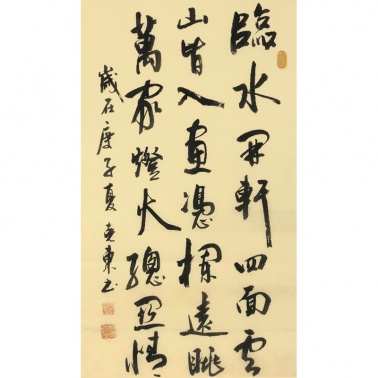 臨水開軒四面雲
山皆入畫憑欄遠眺
萬家燈火總關情
歲在庚子夏克東书